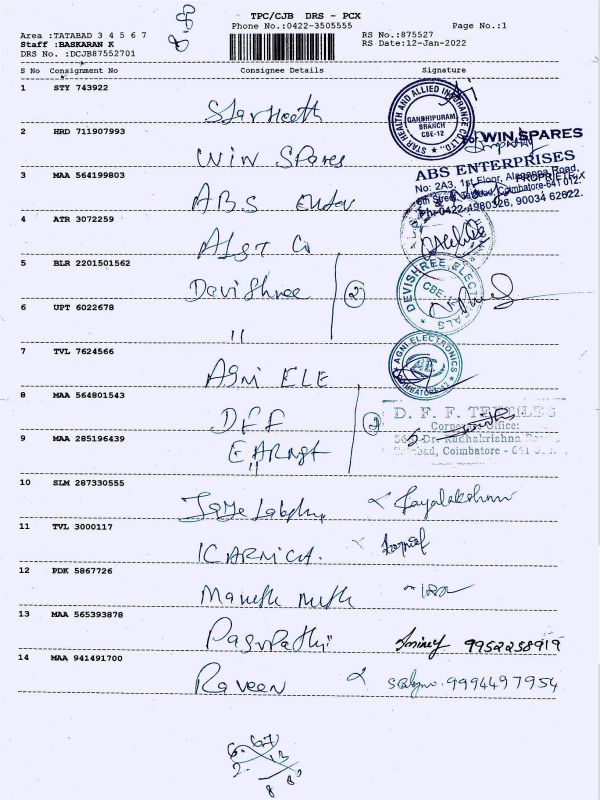 TPC/CJB DRS - PCX
Phone No.:0422-3505555
Page No.:1
Area :TATABAD 3 4 5 6 7
Staff :BASKARAN K
DRS No. :DCJB87552701
RS No.:875527
RS Date:12-Jan-2022
S No Consignment No Consignee Details Signature
1 STY 743922
STAR HEALTH AND ALLIED INSURANCE CO.LTD.
GANDHIPURAM
BRANCH
CBE-12
2 HRD 711907993
Win Spares
For WIN SPARES
PROPRIETRIX
3 MAA 564199803
ABS Enter
ABS ENTERPRISES
No: 2A3, 1st Floor, Alagappa Road,
6th Street, Tatabad, Coimbatore-641 012.
Ph: 0422-4980326, 90034 62822.
4 ATR 3072259
5 BLR 2201501562
Devishree
2
DEVISHREE ELECTRICALS
CBE-12
6 UPT 6022678
"
7 TVL 7624566
Agni ELE
AGNI ELECTRONICS
COIMBATORE-12
8 MAA 564801543
DFF
2
D. F. F. TEXTILES
Corporate Office:
Dr. Radhakrishna Road
Tatabad, Coimbatore - 641 012.
9 MAA 285196439
"
10 SLM 287330555
Jayalakshmi
11 TVL 3000117
12 PDK 5867726
13 MAA 565393878
Pasupathi
9952258919
14 MAA 941491700
Raveen
9994497954